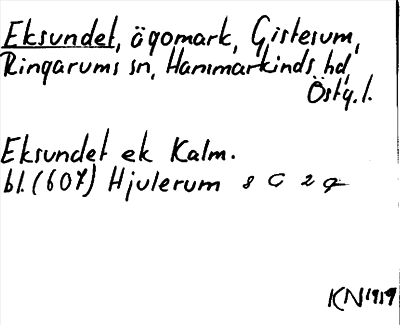 Eksundet, ägomark, Gisterum,
Ringarums sn, Hammarkinds hd,
Östg. l.
Eksundet ek Kalm.
bl. (607) Hjulerum 8 G 2 g
KN 1959